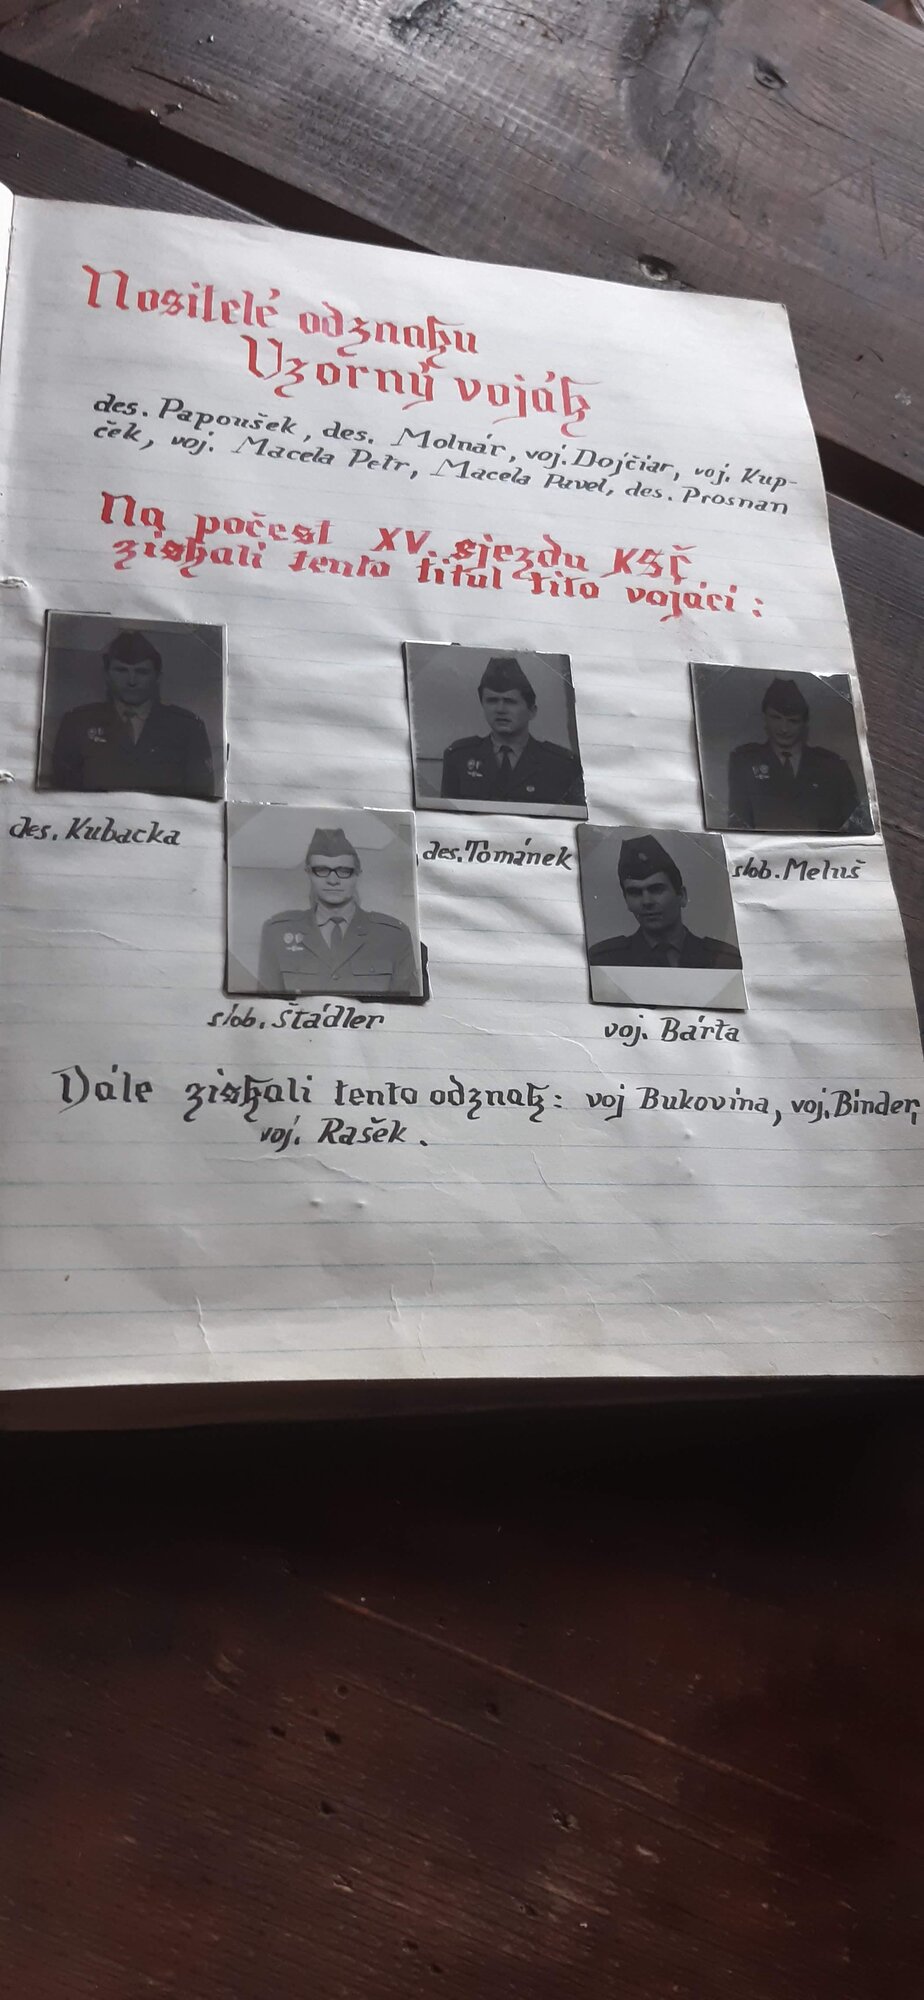 Nositelé odznaku
Vzorný voják
des. Papoušek, des. Molnár, voj. Dojčiar, voj. Kup-
ček, voj. Macela Petr, Macela Pavel, des. Prosnan
Na počest XV. sjezdu KSČ
získali tento titul tito vojáci :
des. Kubacka
des. Tománek
slob. Meluš
slob. Štádler
voj. Bárta
Dále získali tento odznak: voj Bukovina, voj. Binder,
voj. Rašek.